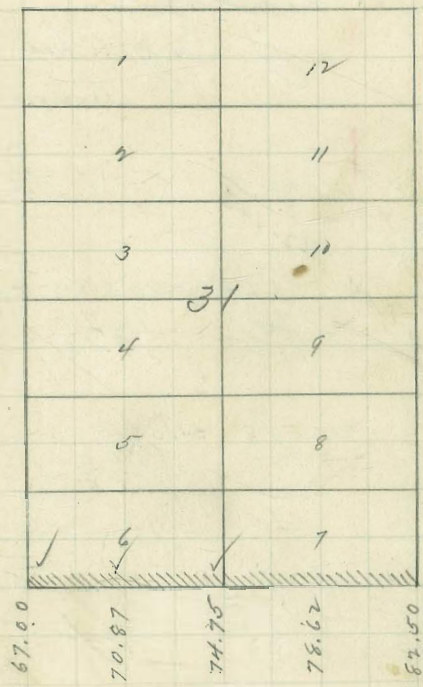 1 12
2 11
3 10
31
4 9
5 8
6 7
67.00
70.87
74.75
78.62
82.50